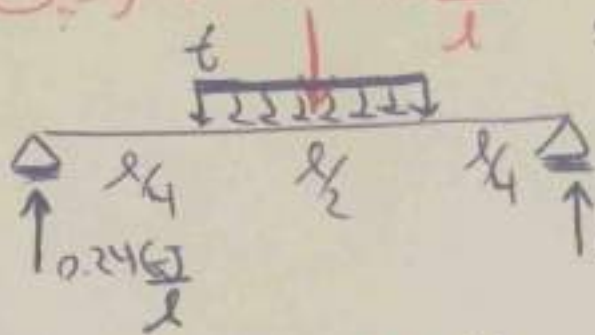 l
t
l/4 l/2 l/4
0.24 EI/l